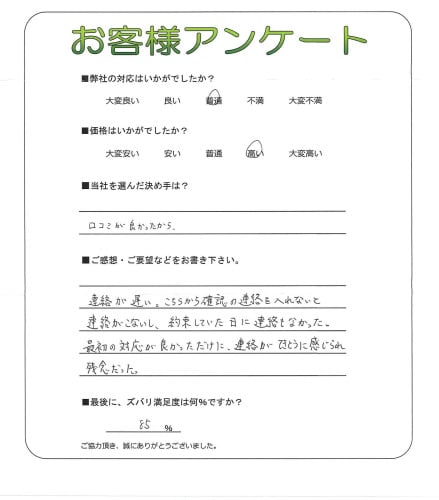 お客様アンケート
■弊社の対応はいかがでしたか？
大変良い 良い 普通 不満 大変不満
■価格はいかがでしたか？
大変安い 安い 普通 高い 大変高い
■当社を選んだ決め手は？
口コミが良かったから、
■ご感想・ご要望などをお書き下さい。
連絡が遅い。こちらから確認の連絡を入れないと
連絡がこないし、約束していた日に連絡もなかった。
最初の対応が良かっただけに、連絡が に感じられ
残念だった。
■最後に、ズバリ満足度は何％ですか？
85 ％
ご協力頂き、誠にありがとうございました。